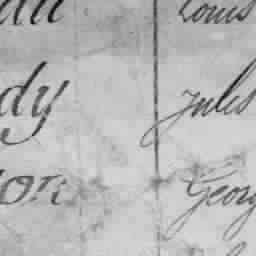 Louis
dy Jules
on Georg